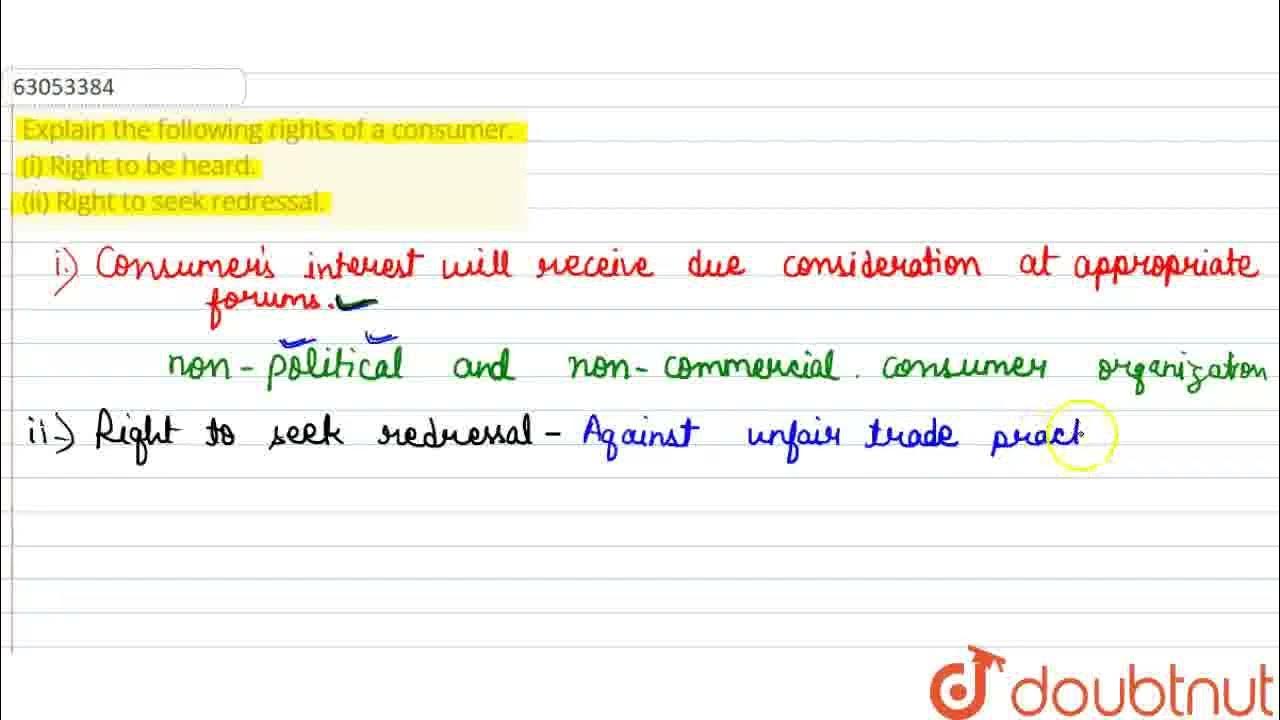 63053384
Explain the following rights of a consumer.
(i) Right to be heard.
(ii) Right to seek redressal.
i.) Consumer's interest will receive due consideration at appropriate
forums.
non-political and non-commercial. consumer organization
ii.) Right to seek redressal - Against unfair trade pract
doubtnut